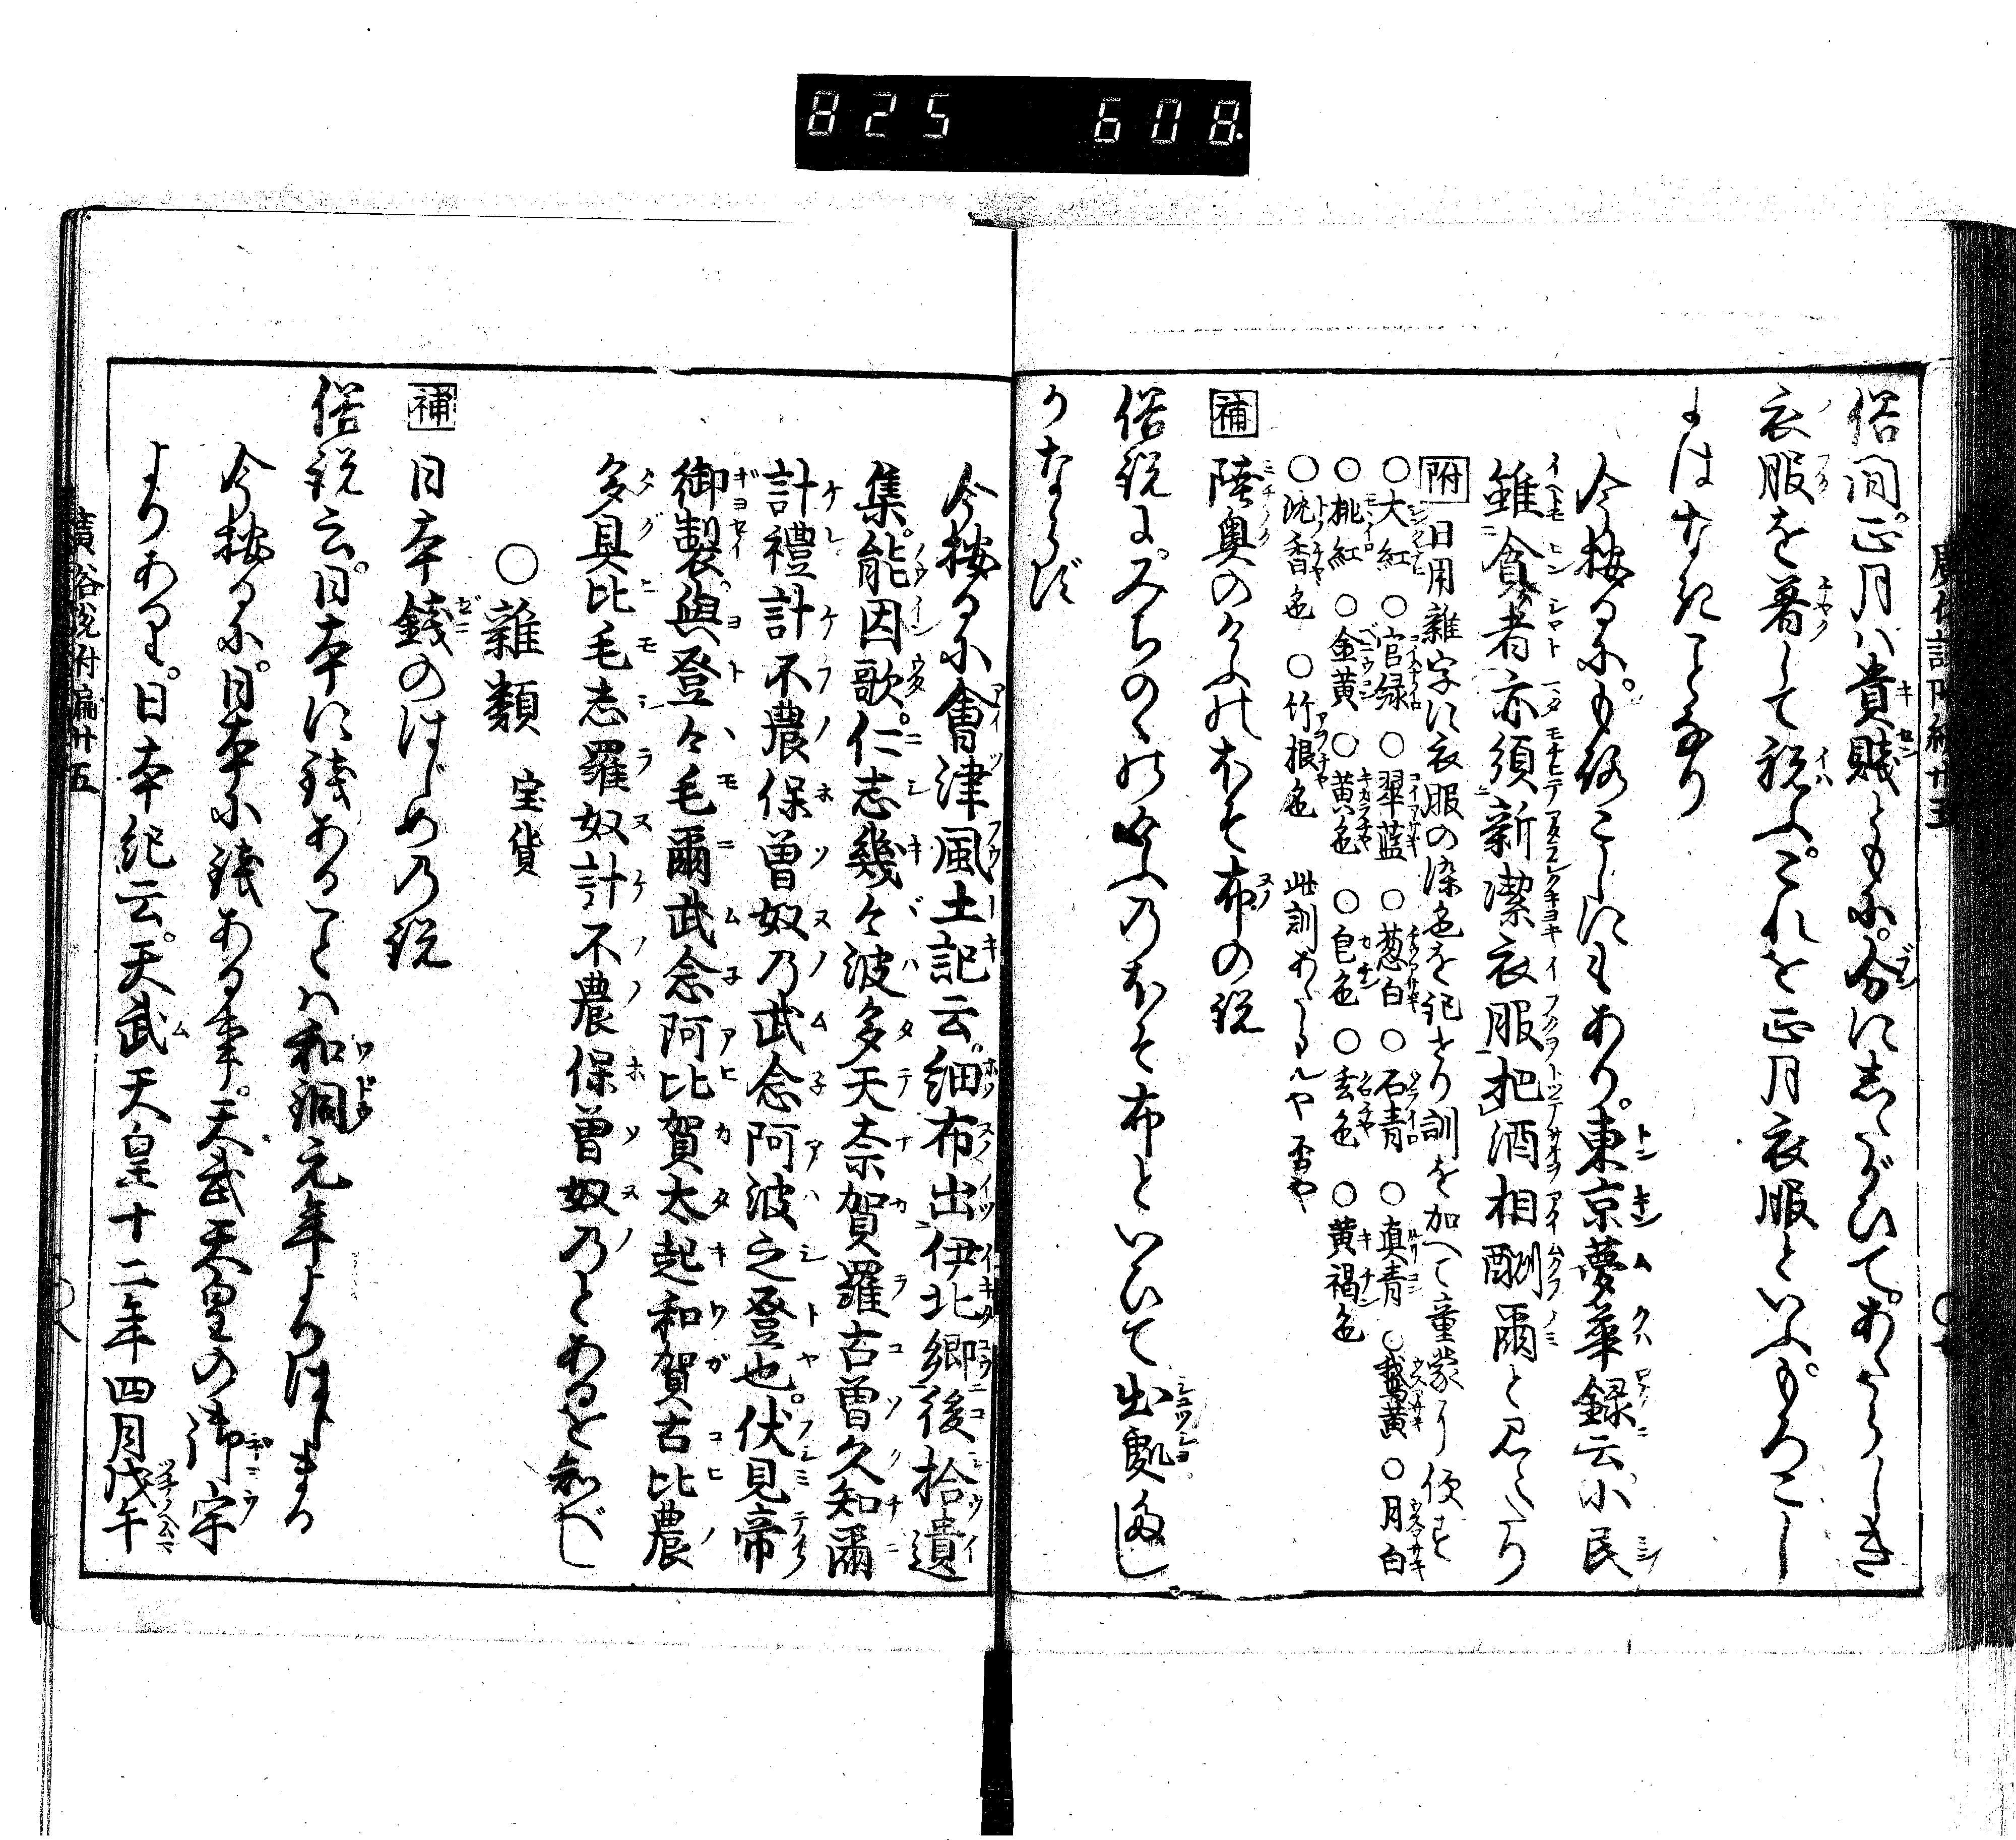 825 608
俗間正月ハ貴賤ともに分にしたがひてあたらしき
衣服を着して祝ふこれを正月衣服といふもろこし
にはなきことなり
今按るにもろこしにもあり東京夢華録云小民
雖貧者亦須新潔衣服把酒相酬爾と見えたり
附 日用雑字に衣服の染色を記せり訓を加へて童蒙に便す
○大紅 ○官緑 ○翠藍 ○葱白 ○石青 ○真青 ○鵝黄 ○月白
○桃紅 ○金黄 ○黄色 ○皂色 ○玄色 ○黄褐色
○沈香色 ○竹根色 此訓あたるや否や
補 陸奥のけふのほそ布の説
俗説にみちのくのけふのほそ布といひて出處
今按るに會津風土記云細布出伊北郷後拾遺
集能因歌仁志幾々波多天奈賀羅古曽久知爾
計禮計不農保曽奴乃武念阿波之登也伏見帝
御製與登々毛爾武念阿比賀太起和賀古比農
多具比毛志羅奴計不農保曽奴乃とあるを知べし
○雜類 宝貨
補 日本銭のはじめの説
俗説云日本に銭あることハ和銅元年よりはじまる
今按るに日本に銭ある事天武天皇の御宇
よりあり日本紀云天武天皇十二年四月戊午
廣俗説附編廿五